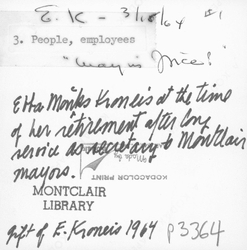 E. K - 3/18/64 #1
3. People, employees
"Mayin Price!"
Etta Monks Kroneis at the time
of her retirement after long
service as secretary to Montclair
mayors.
KODACOLOR PRINT
Made by
MONTCLAIR
LIBRARY
gift of E. Kroneis 1964 p3364